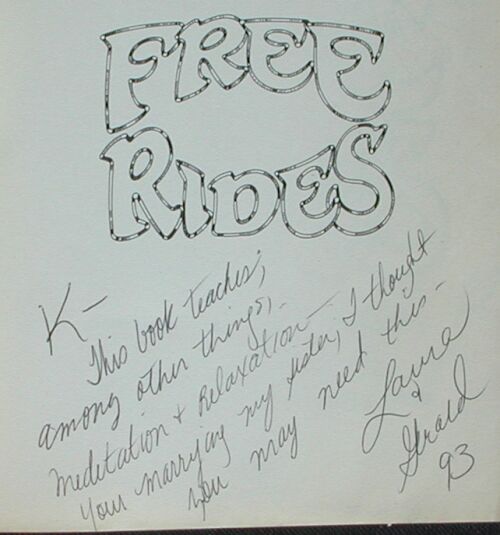 FREE
RIDES
K-
This book teaches,
among other things,
Meditation & Relaxation-
Your marrying my sister, I thought
you may need this-
Laura
&
Gerald
93